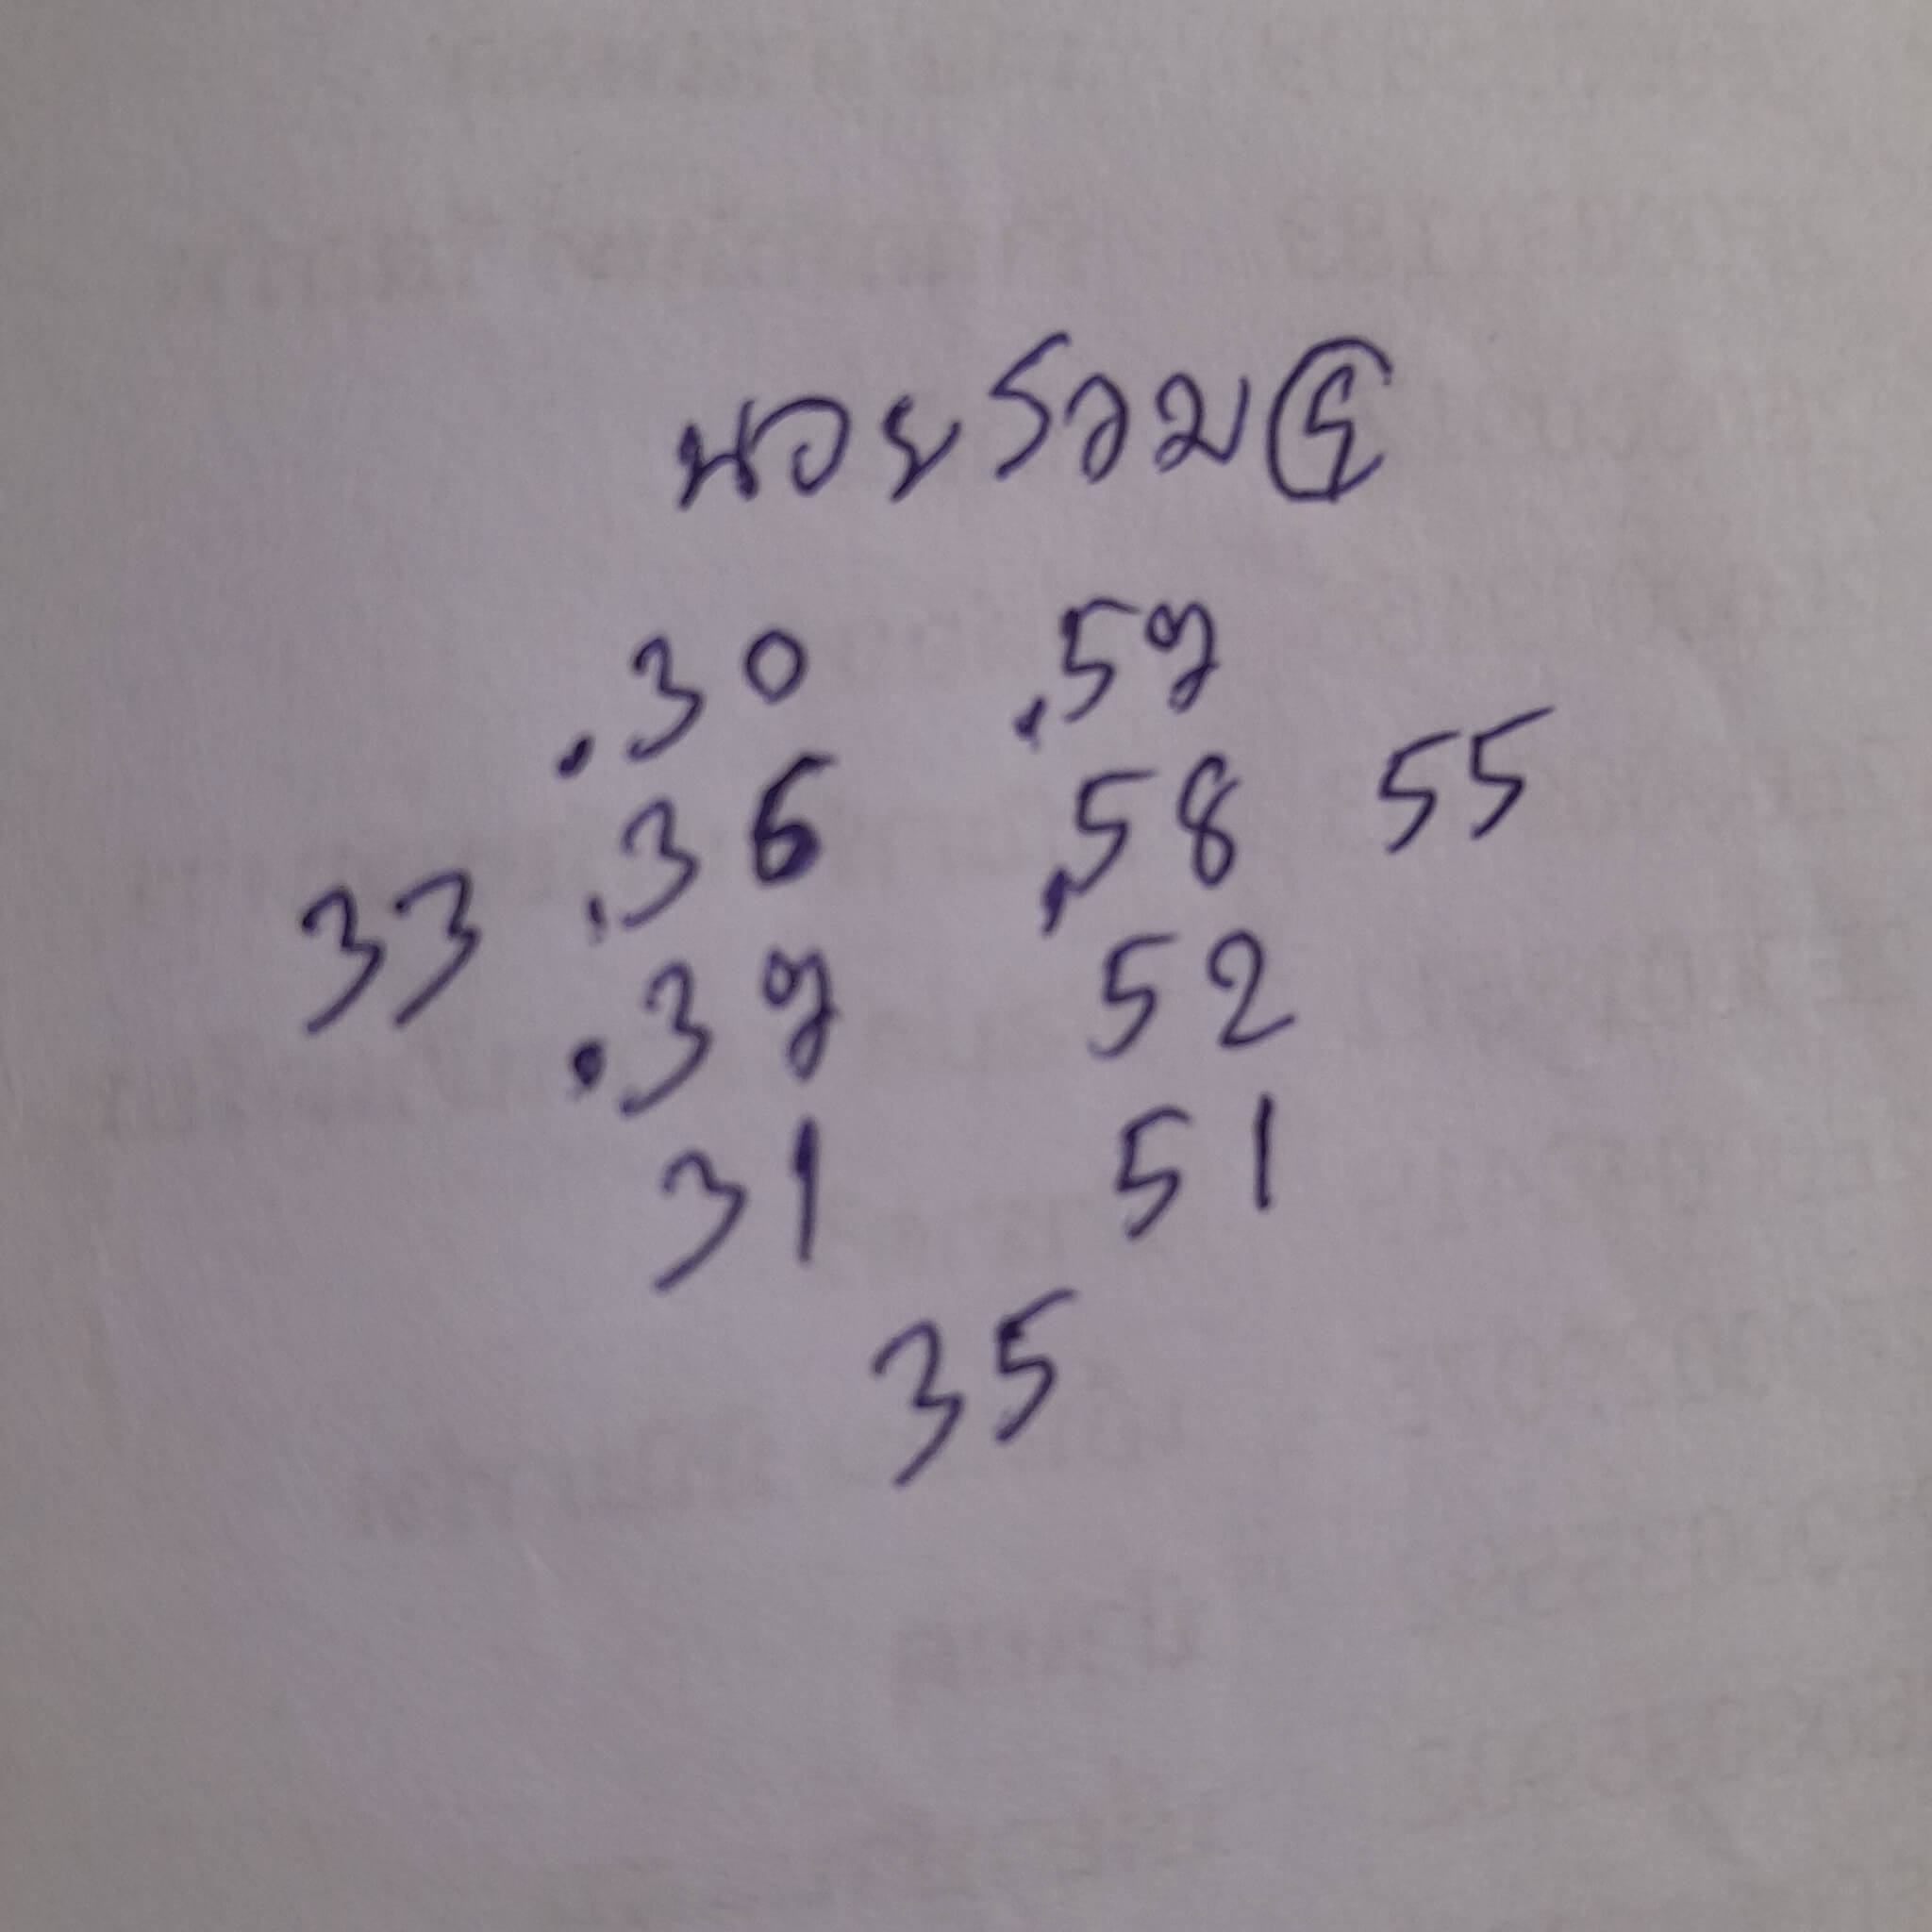 นอยรวม
.30 .59
.36 .58 55
33 .39 52
31 51
35